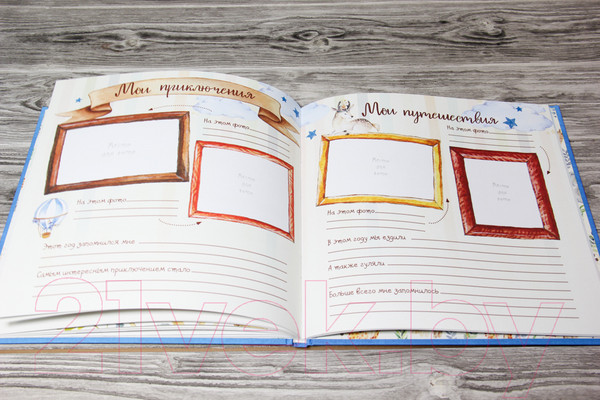 Мои приключения
На этом фото
Место
для
фото
Место
для
фото
На этом фото
Этот год запомнился мне
Самым интересным приключением стало
Мои путешествия
На этом фото
Место
для
фото
Место
для
фото
На этом фото
В этом году мы ездили
А также гуляли
Больше всего мне запомнилось
21vek.by